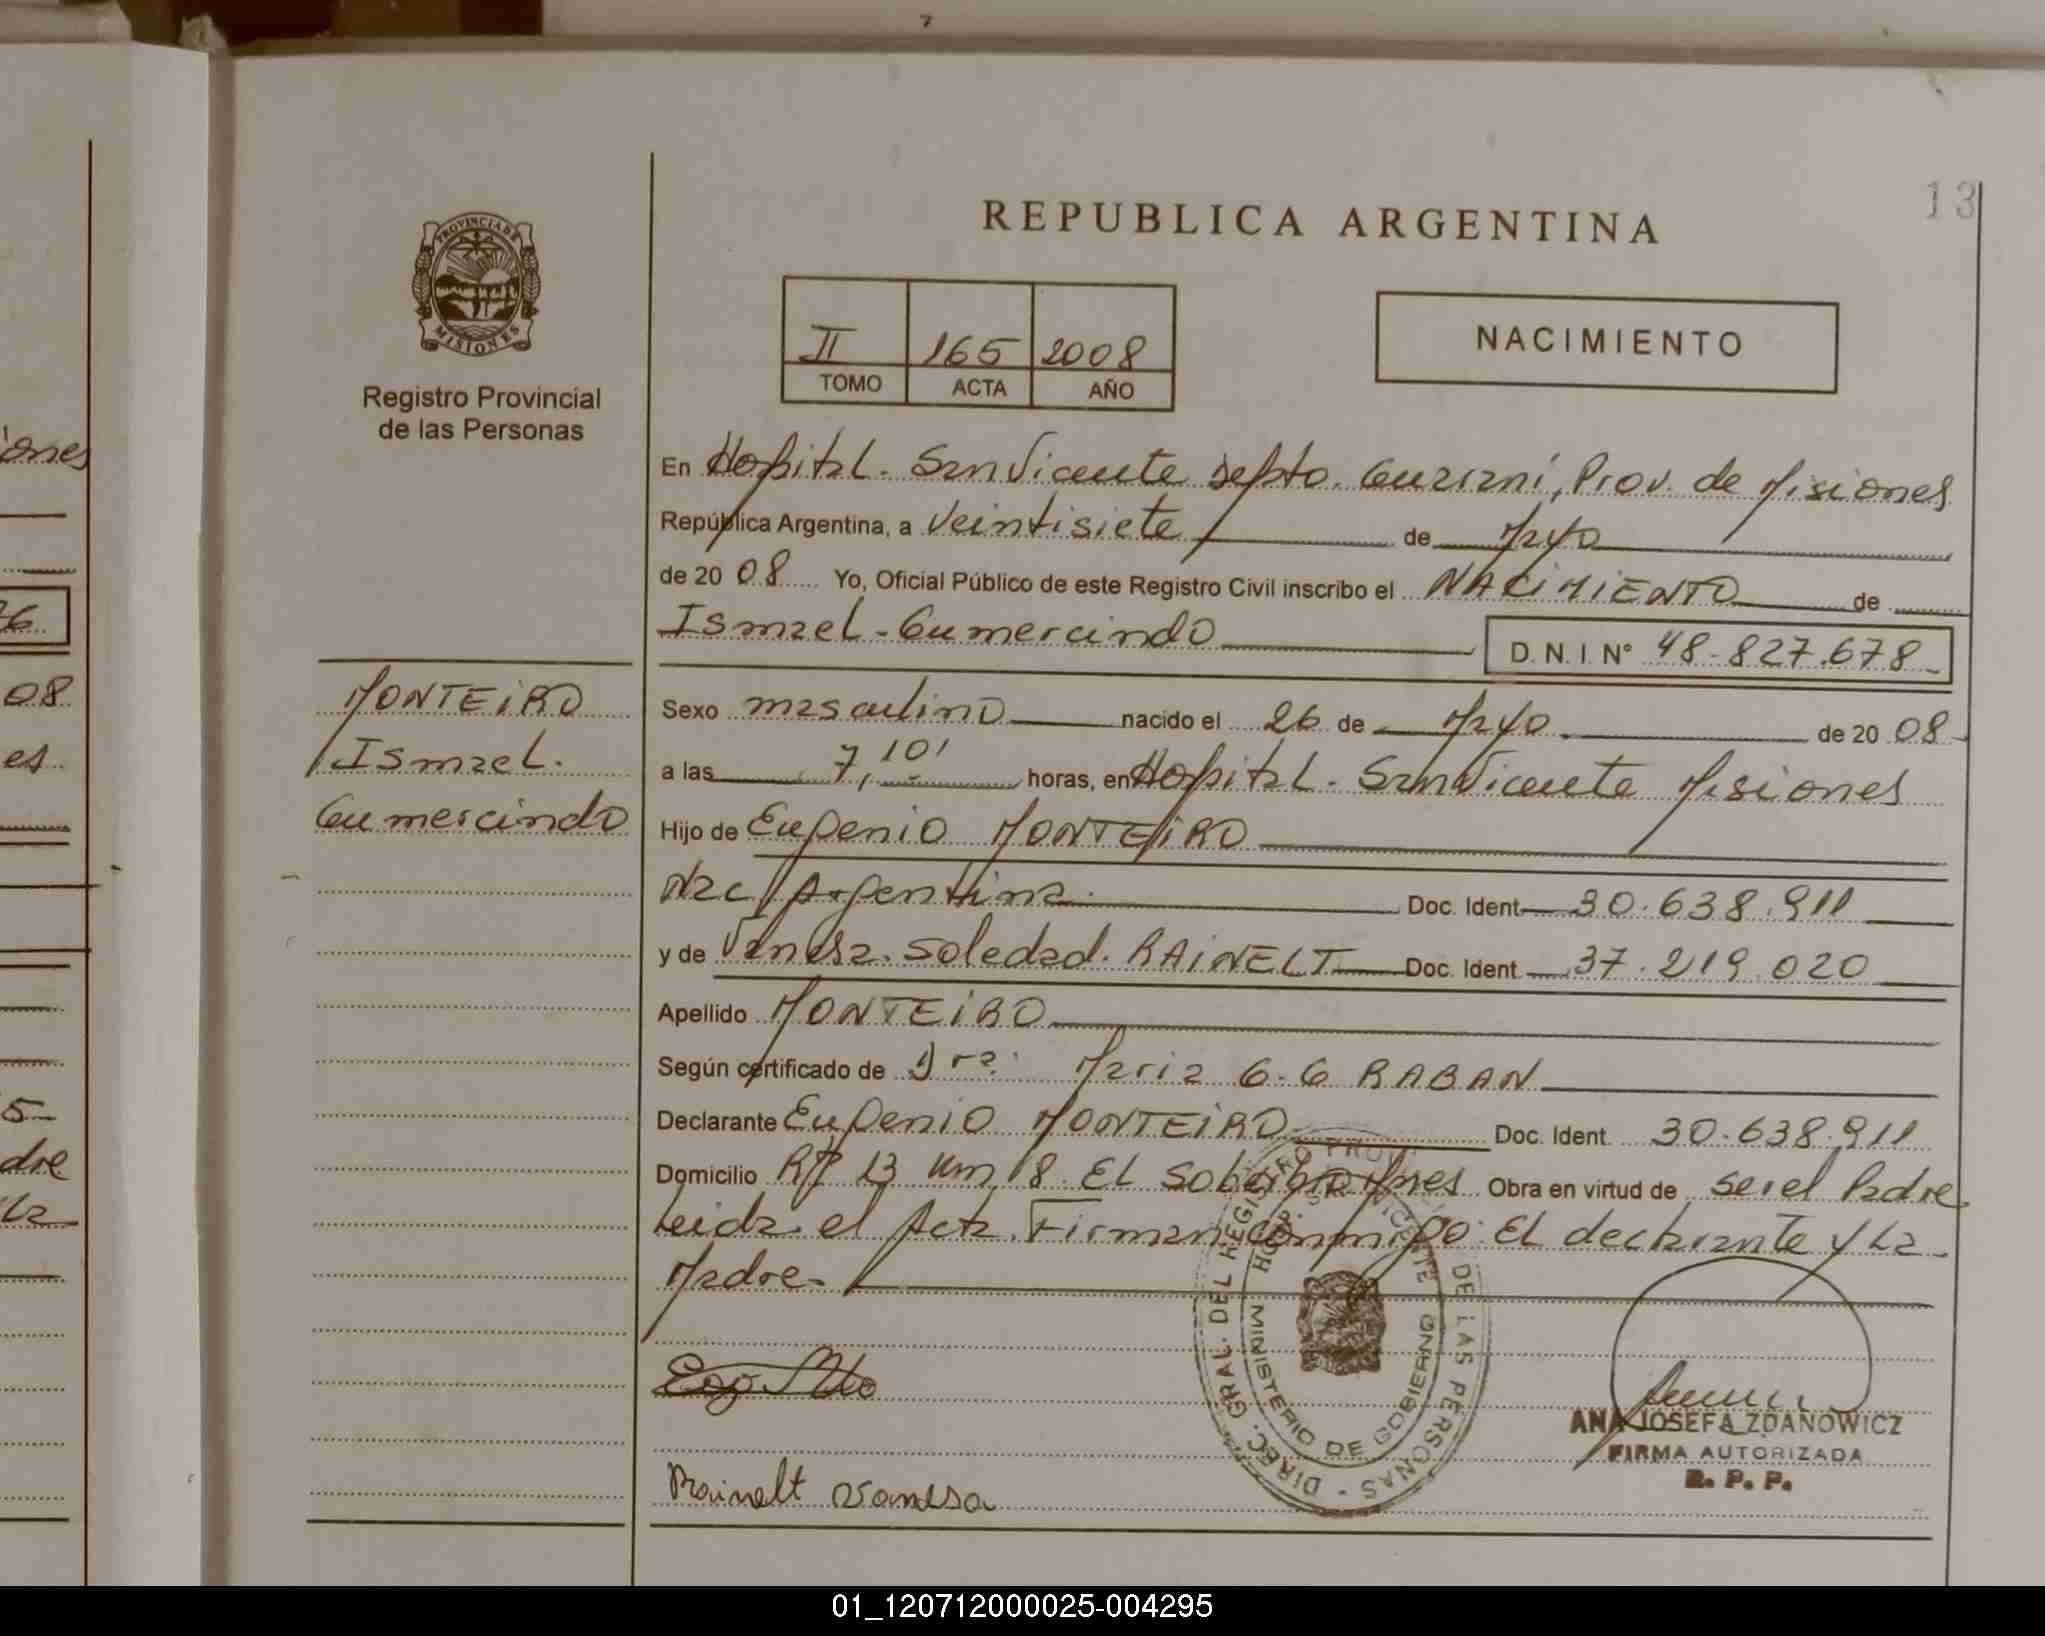 13
REPUBLICA ARGENTINA
PROVINCIA DE
MISIONES
Registro Provincial
de las Personas
II 165 2008
TOMO ACTA AÑO
NACIMIENTO
En Hospital. San Vicente depto. Guaraní, Prov. de Misiones
República Argentina, a Veintisiete de Mayo
de 20 08 Yo, Oficial Público de este Registro Civil inscribo el NACIMIENTO de
Ismael - Gumercindo D.N.I. Nº 48-827.678
MONTEIRO
Ismael.
Gumercindo
Sexo masculino nacido el 26 de Mayo de 20 08
a las 7,10' horas, en Hospital. San Vicente Misiones
Hijo de Eugenio MONTEIRO
Nac/Argentina. Doc. Ident 30.638.911
y de Vanesa. Soledad. RAINELT Doc. Ident. 37.219.020
Apellido MONTEIRO
Según certificado de Dra. Maria G. G RABAN
Declarante Eugenio MONTEIRO Doc. Ident 30.638.911
Domicilio RP 13 Km 18. El Soberbio Mnes Obra en virtud de ser el Padre
Leida el Acta. Firman conmigo: El declarante y La
Madre.
DIREC. GRAL. DEL REGISTRO PROV. DE LAS PERSONAS
HOSP. SAN VICENTE
MINISTERIO DE GOBIERNO
Rainelt Vanesa
ANA JOSEFA ZDANOWICZ
FIRMA AUTORIZADA
R. P. P.
iones
76
08
es
5
dre
La
01_120712000025-004295